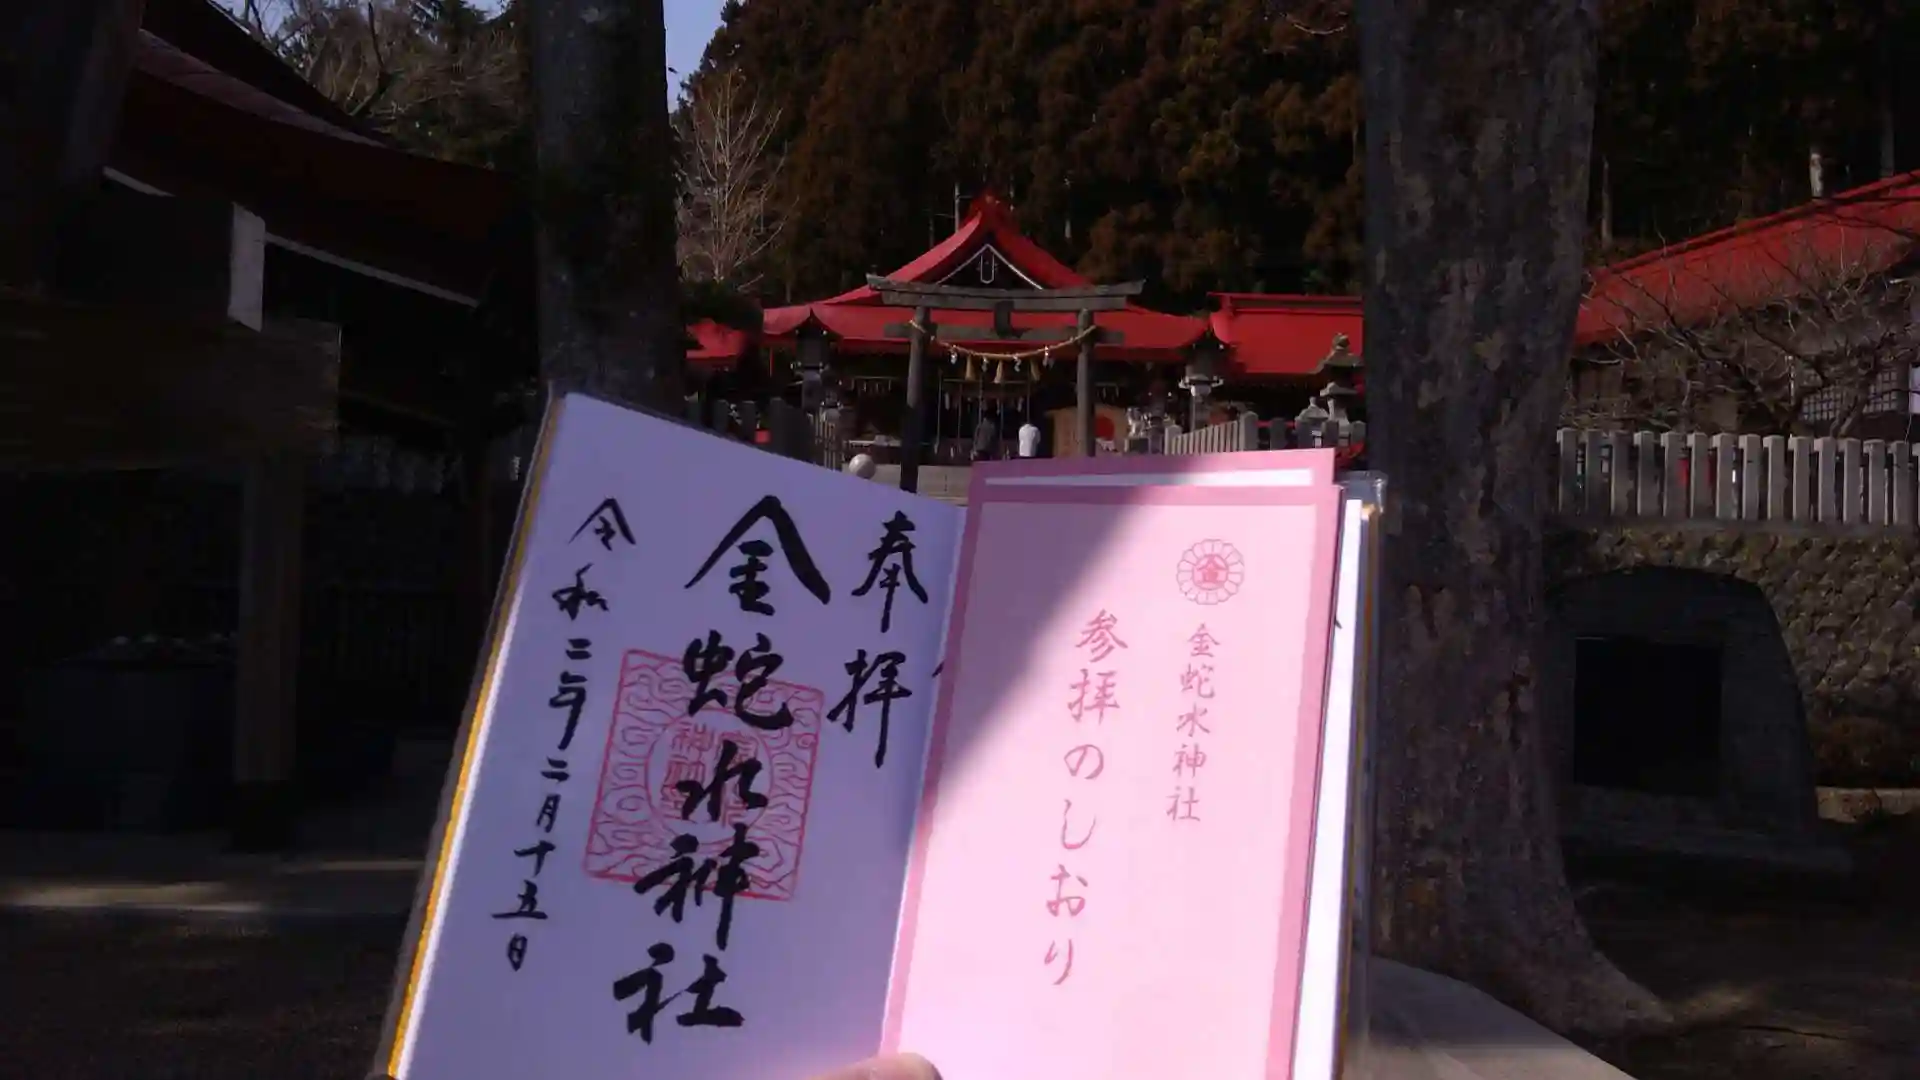 奉拝
金蛇水神社
令和二年二月十五日
金
金蛇水神社
参拝のしおり